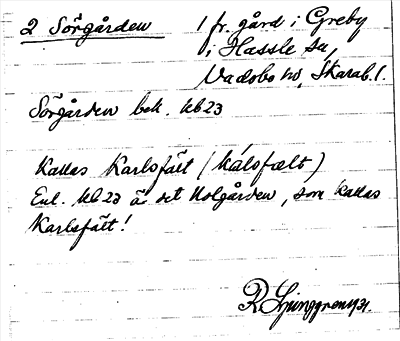 2 Sörgården 1 fr. gård i Greby
i Hassle sn,
Vadsbo hd, Skarab. l.
Sörgården bek. kb 23
Kallas Karlsfält (kálsfælt)
Enl. kb 23 är det Nolgården, som kallas
Karlsfält!
R. Ljunggren 1931.